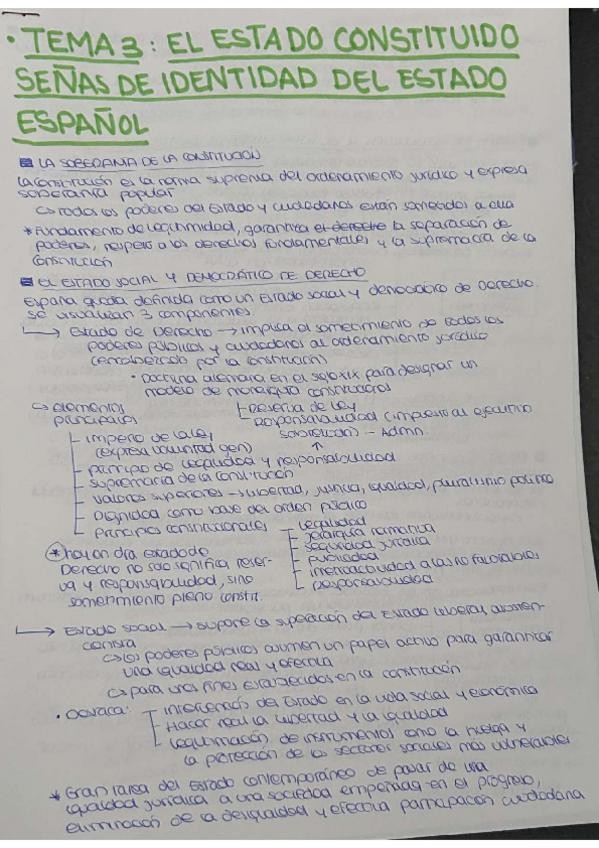 • TEMA 3: EL ESTADO CONSTITUIDO
SEÑAS DE IDENTIDAD DEL ESTADO
ESPAÑOL
LA SOBERANIA DE LA CONSTITUCIÓN
La Constitución es la norma suprema del ordenamiento jurídico y expresa
soberanía popular
↳ Todos los poderes del Estado y ciudadanos están sometidos a ella
* Fundamento de legitimidad, garantiza el derecho la separación de
poderes, respeto a los derechos fundamentales y la supremacía de la
Constitución
EL ESTADO SOCIAL Y DEMOCRÁTICO DE DERECHO
España queda definida como un Estado social y democrático de Derecho.
Se visualizan 3 componentes.
↳ Estado de Derecho → implica el sometimiento de todos los
poderes públicos y ciudadanos al ordenamiento jurídico
(encabezado por la Constitución)
• Doctrina alemana en el siglo XIX para designar un
modelo de monarquía constitucional
↳ elementos
principales
Reserva de Ley
Responsabilidad (impuesto al ejecutivo
sobretodo) - Admn.
imperio de la ley
(expresa voluntad gen)
principio de legalidad y responsabilidad
supremacia de la Constitución
valores superiores → libertad, justicia, igualdad, pluralismo político
Dignidad como base del orden público
Principios constitucionales
Legalidad
jerarquía normativa
seguridad jurídica
publicidad
irretroactividad a las no favorables
responsabilidad
* hoy en día estado de
Derecho no solo significa reser-
va y responsabilidad, sino
sometimiento pleno constit.
↳ Estado social → supone la superación del Estado liberal
↳ los poderes públicos asumen un papel activo para garantizar
una igualdad real y efectiva
↳ para unos fines establecidos en la constitución
intervención del Estado en la vida social y económica
Hacer real la libertad y la igualdad
Legitimación de instrumentos como la huelga y
la protección de los sectores sociales más vulnerables
* Gran tarea del Estado contemporáneo de pasar de una
igualdad jurídica a una sociedad empeñada en el progreso,
eliminación de la desigualdad y efectiva participación ciudadana